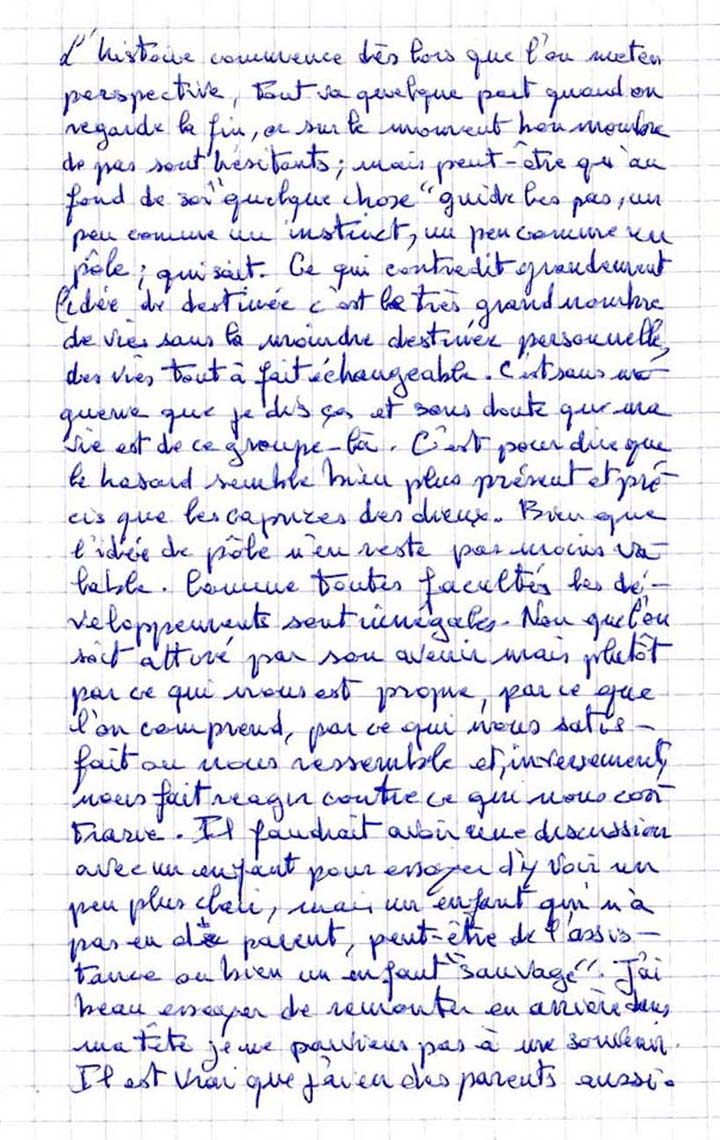 L'histoire commence dès lors que l'on met en
perspective, tout va quelque part quand on
regarde la fin, or sur le moment bon nombre
de pas sont hésitants; mais peut-être qu'au
fond de soi "quelque chose" guide les pas, un
peu comme un instinct, un peu comme un
pôle; qui sait. Ce qui contredit grandement
l'idée de destinée c'est le très grand nombre
de vies sans la moindre destinée personnelle,
des vies tout à fait échangeable. C'est sans mo-
querie que je dis ça et sans doute que ma
vie est de ce groupe-là. C'est pour dire que
le hasard semble bien plus présent et pré-
cis que les caprices des dieux. Bien que
l'idée de pôle n'en reste pas moins va-
lable. Comme toutes facultés les dé-
veloppements sont inégales. Non que l'on
soit attiré par son avenir mais plutôt
par ce qui nous est propre, par ce que
l'on comprend, par ce qui nous satis-
fait ou nous ressemble et, inversement,
nous fait réagir contre ce qui nous con
trarie. Il faudrait avoir une discussion
avec un enfant pour essayer d'y voir un
peu plus clair, mais un enfant qui n'a
pas eu de parent, peut-être de l'assis-
tance ou bien un enfant "sauvage". J'ai
beau essayer de remonter en arrière dans
ma tête je ne parviens pas à me souvenir.
Il est vrai que j'ai eu des parents aussi.